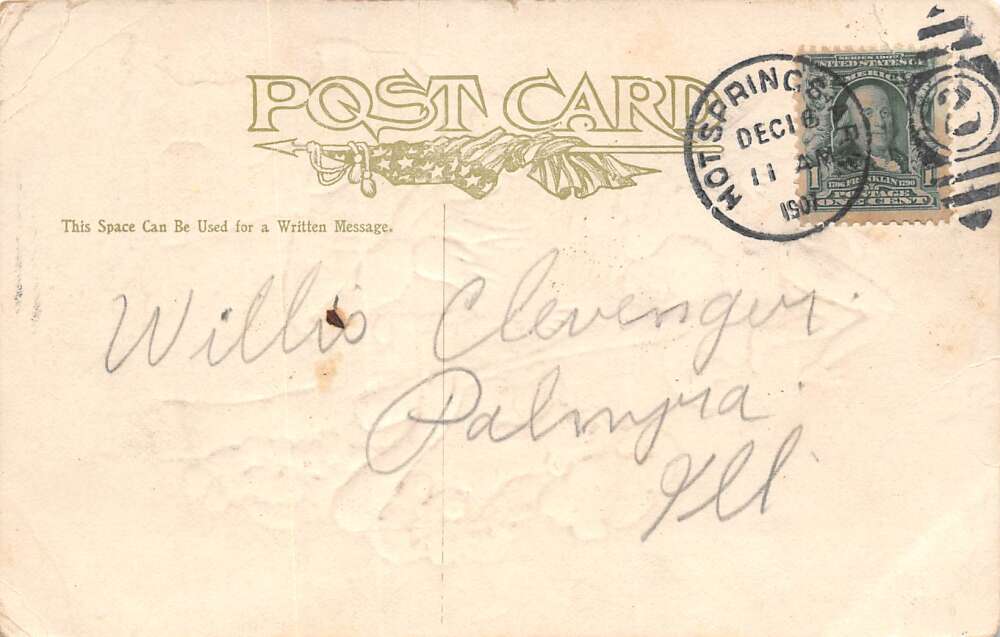 POST CARD
HOT SPRINGS
DEC 18
11 AM
SERIES 1902
UNITED STATES OF
AMERICA
1 1706 FRANKLIN 1790 1
POSTAGE
ONE CENT
This Space Can Be Used for a Written Message.
Willis Clevenger
Palmyra
Ill